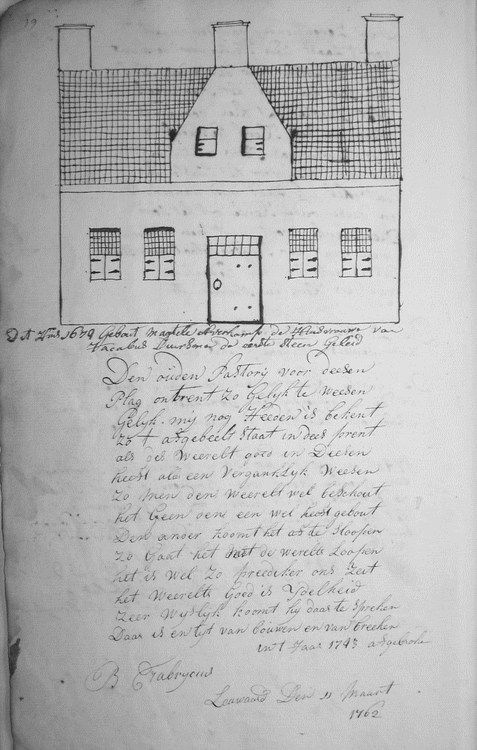 39
Dit Ano 1679 Gebout de Huisvrouwe van
Jacobus de eerste steen Geleid
Den ouden Pastorij voor deesen
Plag ontrent zo Gelijk te weesen
Gelyk mij nog Heeden is bekent
Zo 't afgebeelt staat in dees prent
als des Weerelt goed in Diesen
heeft als een Verganklyk Weesen
Zo men den Weerelt wel beschout
het Geen oene een wel heeft gebout
Den ander koomt het af te sloopen
Zo Gaat het de werelt Loopen
het is wel zo predeker ons Zeit
het Weerelts Goed is Ydelheid
Zeer Wyslyk koomt hy daar te spreken
Daar is en tyt van bouwen en van breeken
int Jaar 1743 afgebroke
B
Leuwaard Den 11 Maart
1762